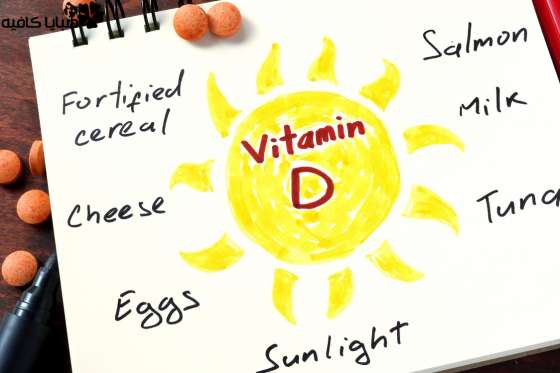 صبايا كافيه
Salmon
Fortified
cereal
Milk
Vitamin
D
Cheese
Tuna
Eggs
Sunlight